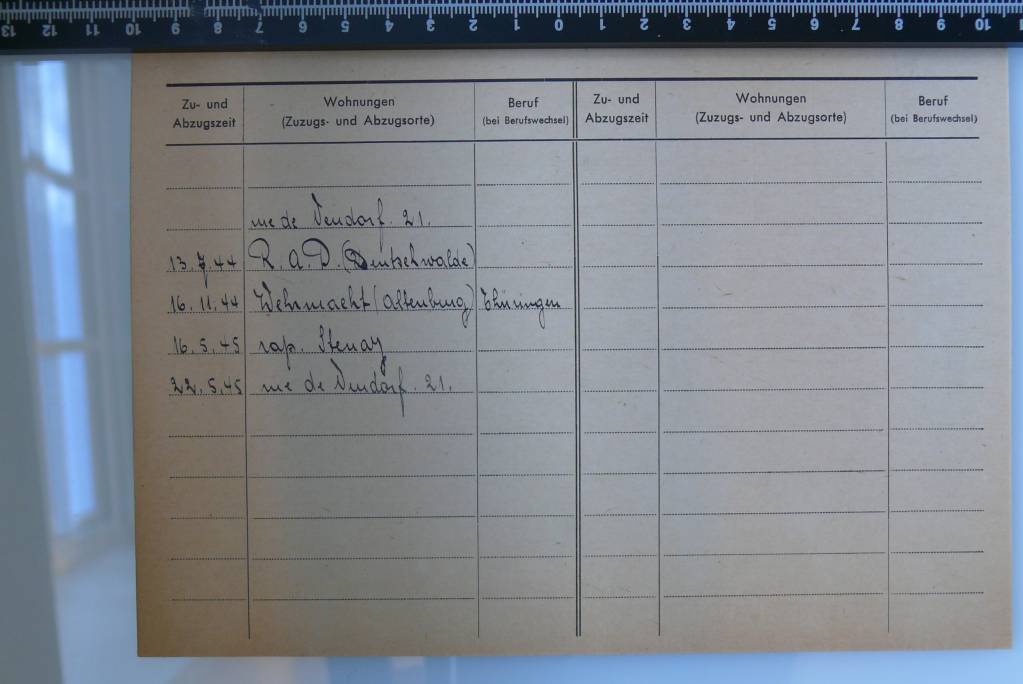 13 12 11 10 9 8 7 6 5 4 3 2 1 0 1 2 3 4 5 6 7 8 9 10
Zu- und Abzugszeit Wohnungen (Zuzugs- und Abzugsorte) Beruf (bei Berufswechsel) Zu- und Abzugszeit Wohnungen (Zuzugs- und Abzugsorte) Beruf (bei Berufswechsel)
rue de Dendorf. 21.
13.7.44 R.A.D. (Deutschwalde)
16.11.44 Wehrmacht (Altenburg) Thüringen
16.5.45 rap. Stenay
22.5.45 rue de Dendorf. 21.